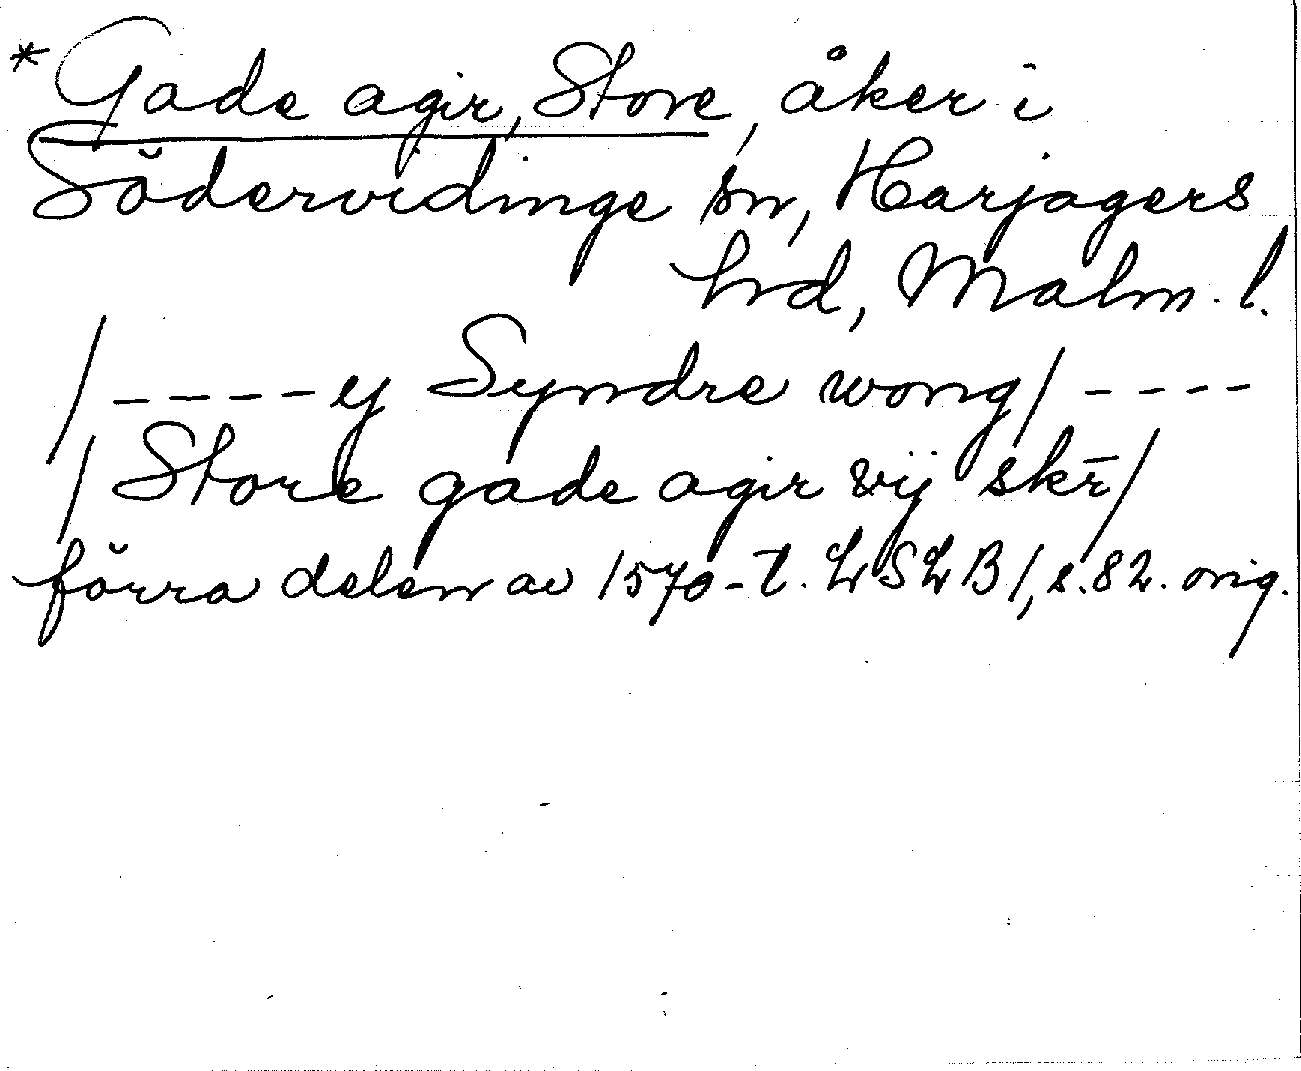 * Gade agir, Store, åker i
Södervidinge sn, Harjagers
hrd, Malm. l.
/ ----- ej Syndre wong / ----
/ Store gade agir vij skr̄ /
förra delen av 1570-t. LSLB 1, s. 82. orig.